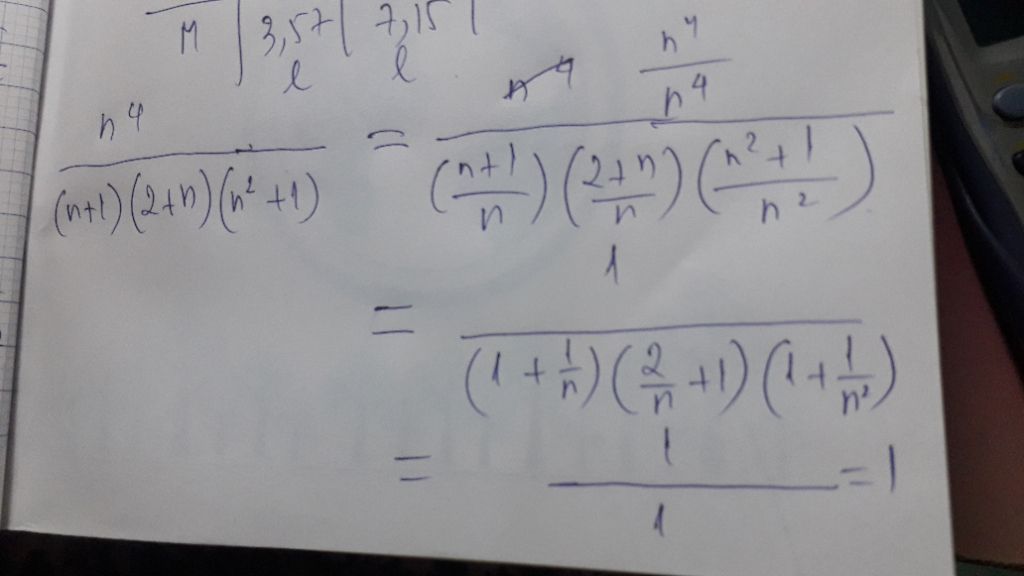 M | 3,57 | 7,15 |
l l
n^4 / ((n+1)(2+n)(n²+1)) = (n^4/n^4) / (((n+1)/n)((2+n)/n)((n²+1)/n²))
= 1 / ((1+1/n)(2/n+1)(1+1/n²))
= 1/1 = 1